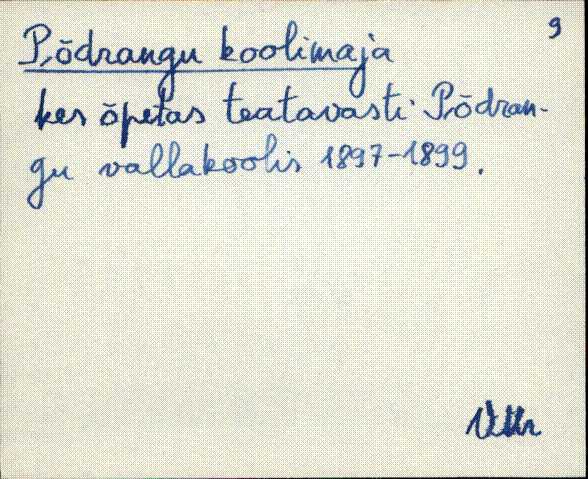 9
Põdrangu koolimaja
kes õpetas teatavasti Põdran-
gu vallakoolis 1897-1899.